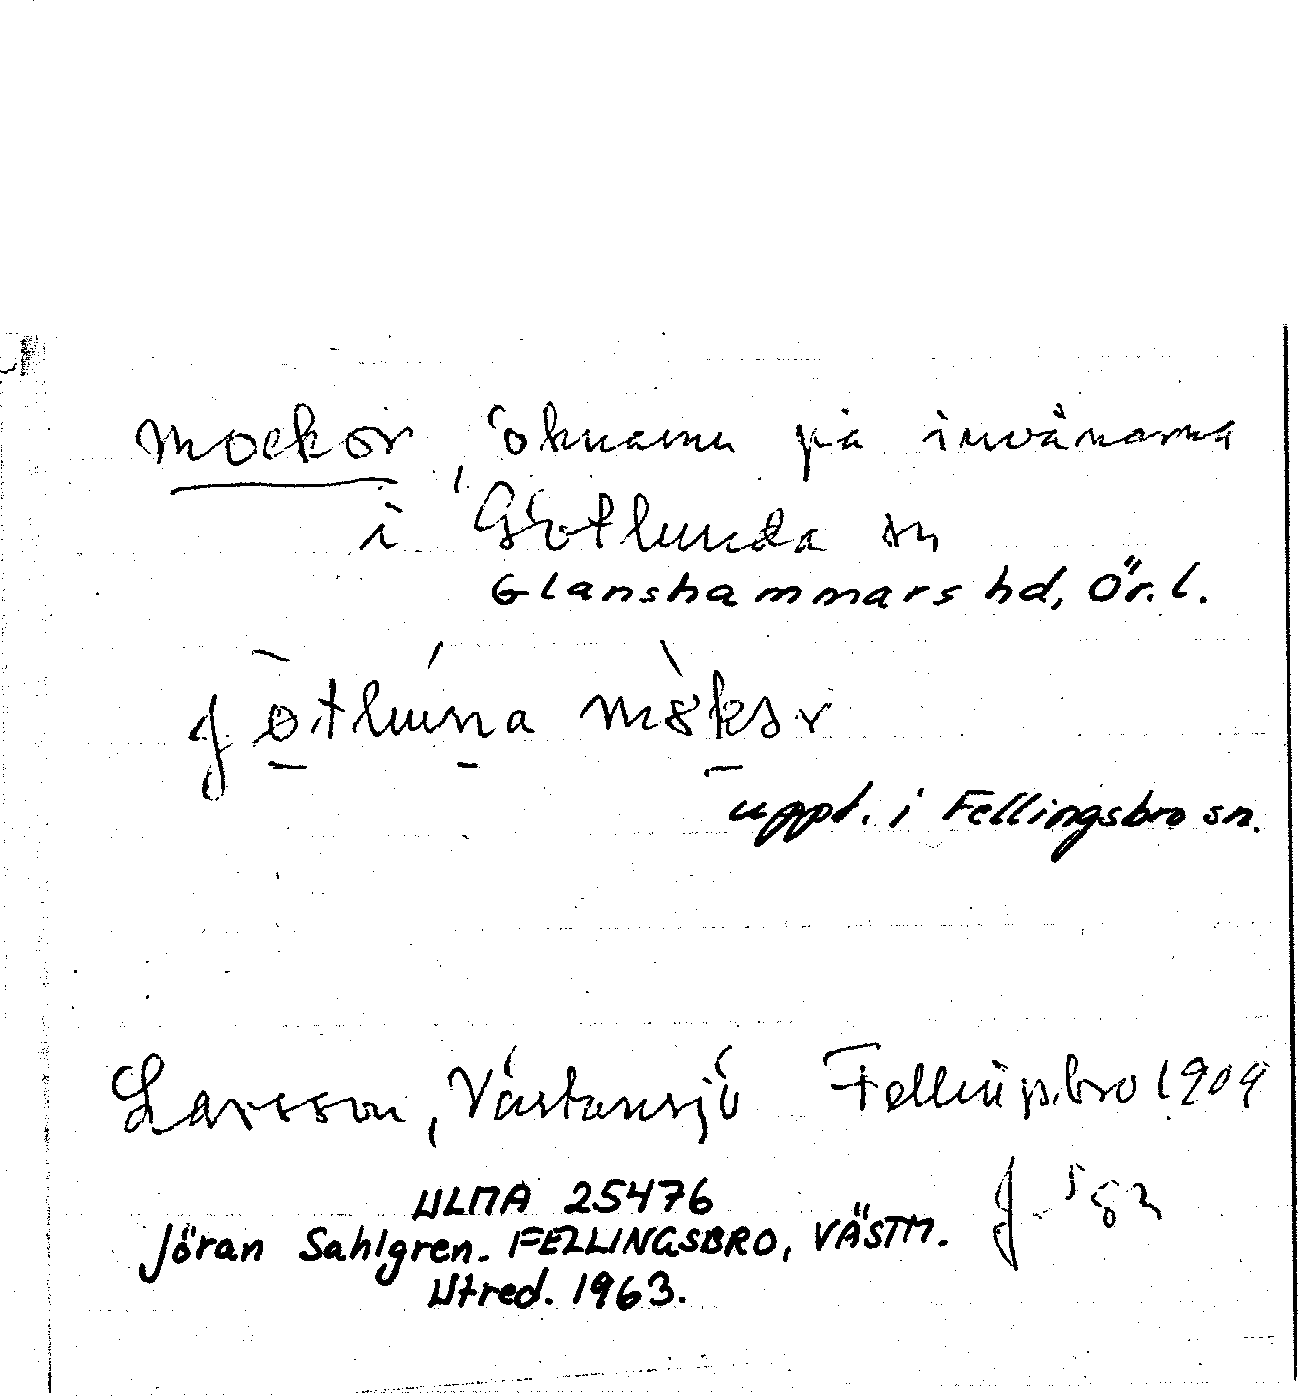 mockor, öknamn på invånarna
i Götlunda sn
Glanshammars hd, Ör. l.
uppt. i Fellingsbro sn.
Larsson, Västansjö Fellingsbro 1909
ULMA 25476
Jöran Sahlgren. FELLINGSBRO, VÄSTM.
Utred. 1963.